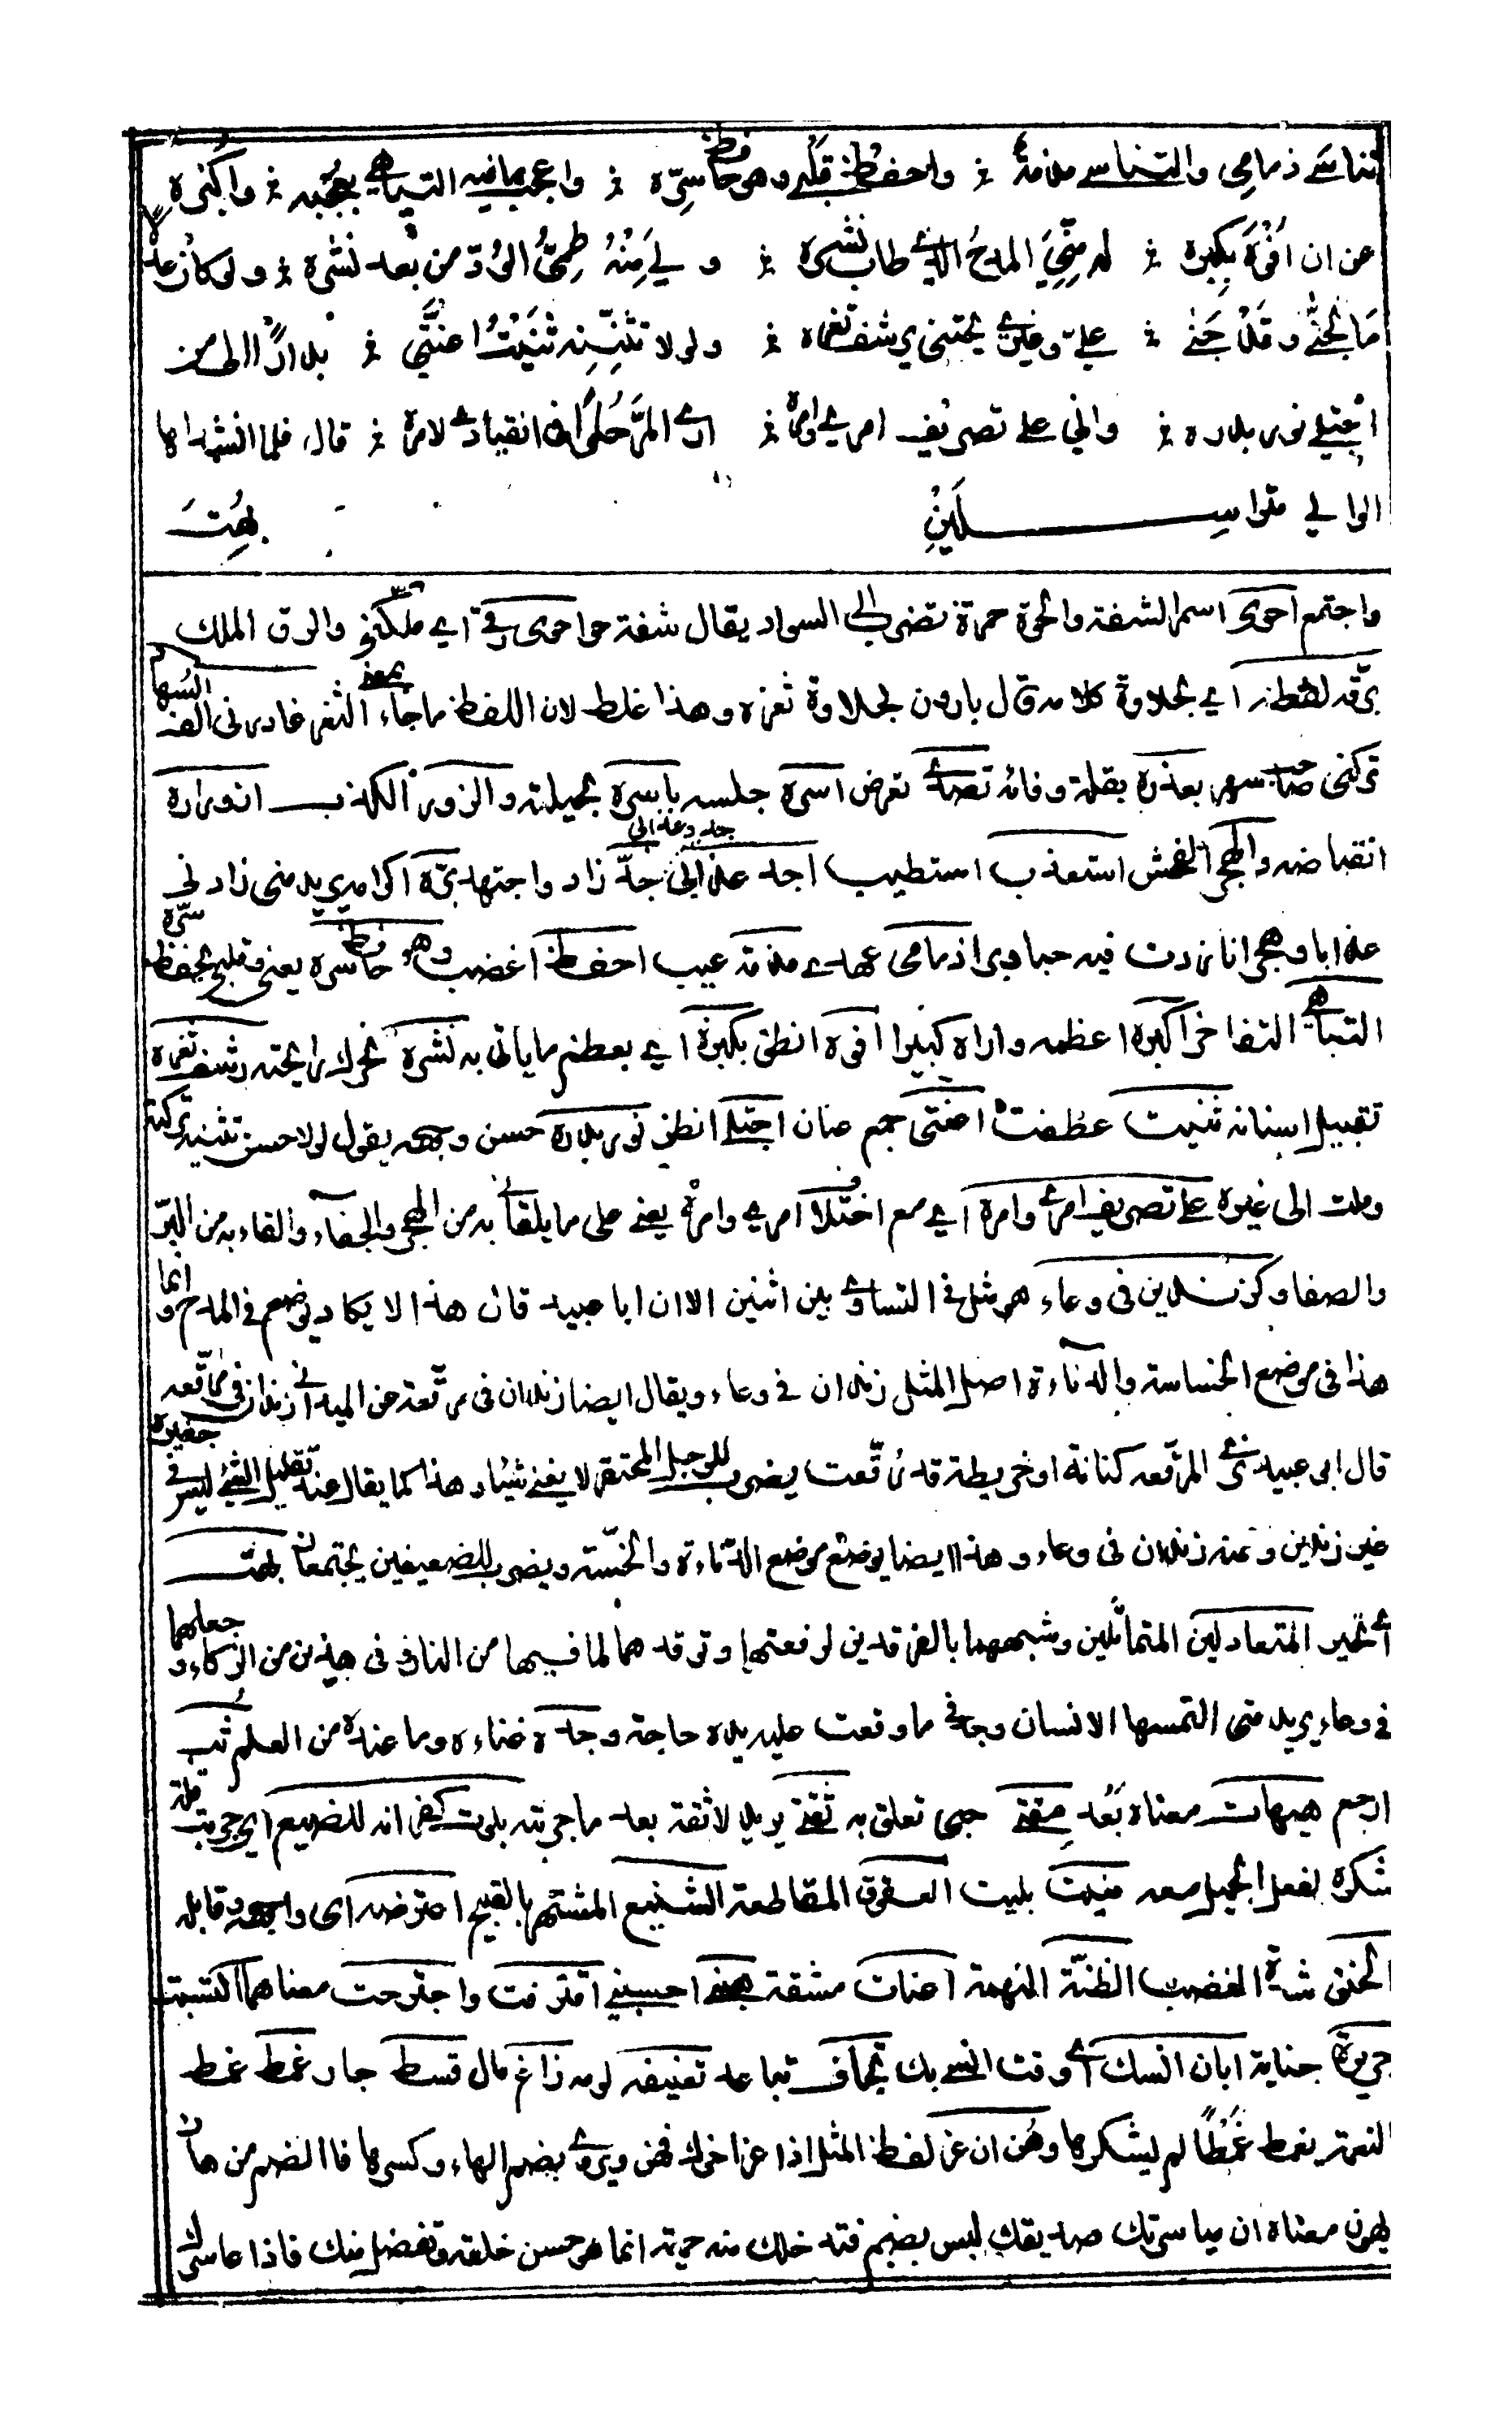 تناسى ذمامي والتناسي مذمة ⁘ واحفظ قلبي وهو حافظ سرّه ⁘ واعجب مافيه التباهي بعجبه ⁘ واكبره
عن ان افوه بكبره ⁘ له منّي المدح الذي طاب نشره ⁘ ولي منه طيّ الودّ من بعد نشره ⁘ ولو كان عدلا
ما تجنّى وقد جنى ⁘ عليّ وغيري يجتني رشف ثغره ⁘ ولولا تثنّيه ثنيت اعنّتي ⁘ بدارًا الى من
اجتلي نور بدره ⁘ واني على تصريف امري وامره ⁘ ارى المرّ حلوًا في انقيادي لامره ⁘ قال فلما انشداها
الوالي متراسلين بهت
واجتمع احوى اسمر الشفة والحوة حمرة تضرب الى السواد يقال شفة حوا احوى رقي اي ملكني والرق الملك
برقة لفظه اي بحلاوة كلامه قال بارون لحلاوة ثغره وهذا غلط لان اللفظ ما جاء بمعنى الثغر غادرني الف السها
تركني صاحب سهر بعذره بقلة وفائه تصدى تعرض اسره جلسه باسره بحيلته والزور الكذب ازوراره
انقباضه والهجر الفحش استعذب استطيب اجد عذابي جدّ زاد واجتهد برّه اكرامه يريد متى زاد في
عذابا وهجرا انا زدت فيه حبا وبرا ذمامي عهدي مذمة عيب احفظ اغضب وهو حافظ سره يعني وقلبي يحفظ سرّه
التباهي التفاخر اكبره اعظمه واراه كبيرا افوه انطق بكبره اي بعظم ما ياتي به نشره تحرك رايحته رشف ثغره
تقبيل اسنانه ثنيت عطفت اعنتي جمع عنان اجتلي انظر نور بدره حسن وجهه يقول لولا حسن تثنيه تركته
وملت الى غيره على تصريف امري وامره اي مع اختلاف امري وامره يعني على ما يلقاني به من الهجر والجفاء والقاه به من البرّ
والصفا وكزندين في وعاء هو مثل في التساوي بين اثنين الا ان ابا عبيد قال هذا لا يكاد يوضع في المدح وانما
هذا في موضع الخساسة والدناءة اصل المثل زندان في وعاء ويقال ايضا زندان في مرقعة عن الميداني زندان في مرقعه
قال ابو عبيد نرى المرقعه كنانة او خريطة قد رقعت يضرب للرجل المحتقر لا يغني شيئا وهذا كما يقال عند تقليل الشيء ليس في جفيره
غير زندين ومنه زندان في وعاء وهذا ايضا يوضع موضع الدناءة والخسة ويضرب للضعيفين يجتمعان بهت
اي تحير المتعادلين المتماثلين وشبههما بالفرقدين لرفعتها وتوقدهما لما فيهما من النار وفي هذين من الذكاء وجعلهما
في وعاء يريد متى التمسها الانسان وجد في ما وقعت عليه يده حاجته وجده غناءه وما عنده من العلم ثب
ارجع هيهات معناه بعد مقتي حبي تعلق به ثقتي يريد لا ثقة بعد ما جربته بلوت كفرانه للصنيع اي جربت قلة
شكره لفعل الجميل معه منيت بليت العقوق المقاطعة الشنيع المشتهر بالقبيح اعترضه اي واجهه وقابله
الحنق شدة الغضب الظنّة التهمة اعنات مشقة هبني احسبني اقترفت واجترحت معناهما اكتسبت
جريرة جناية ابان انسك اي وقت انسي بك تجاف تباعد تعنيفه لومه زاغ مال قسط جار غمط غمط
النعمة يغمط غمطًا لم يشكرها وهن ان عز لفظ المثل اذا عز اخوك فهن ويروى بضم الهاء وكسرها فالضم من هان
يهون معناه ان مياسرتك صديقك ليس بضيم فتدخلك منه حمية انما هو حسن خلقه وتفضل منك فاذا عاسرك